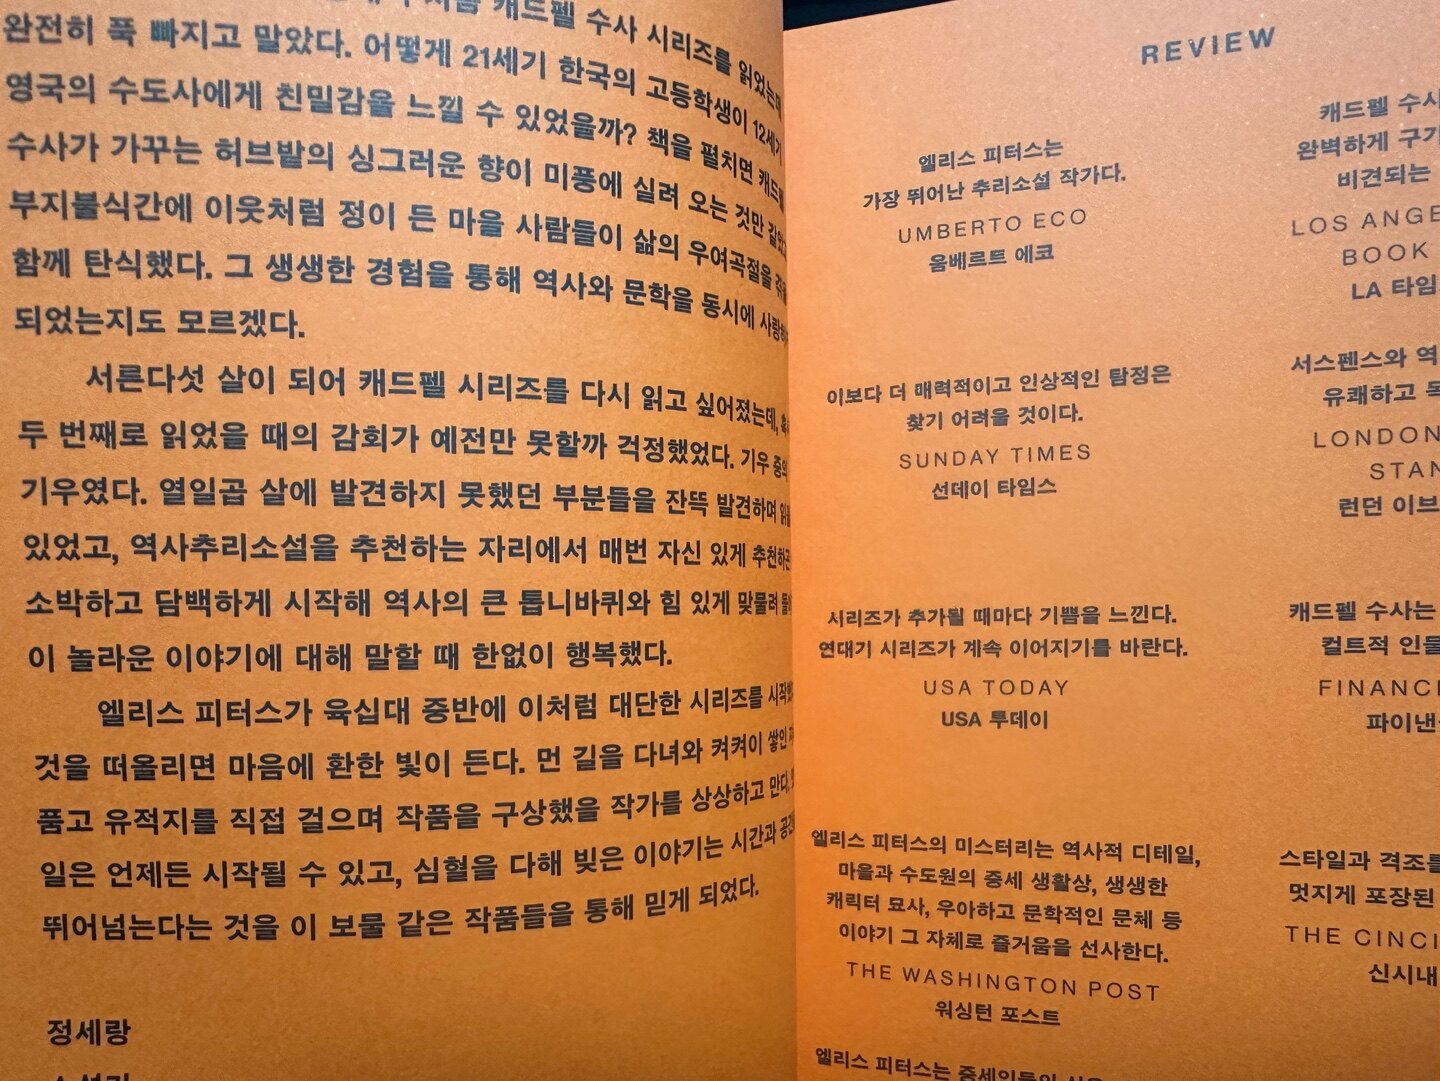 캐드펠 수사 시리즈를 읽었는데
완전히 푹 빠지고 말았다. 어떻게 21세기 한국의 고등학생이 12세기
영국의 수도사에게 친밀감을 느낄 수 있었을까? 책을 펼치면 캐드펠
수사가 가꾸는 허브밭의 싱그러운 향이 미풍에 실려 오는 것만 같았고
부지불식간에 이웃처럼 정이 든 마을 사람들이 삶의 우여곡절을
함께 탄식했다. 그 생생한 경험을 통해 역사와 문학을 동시에
되었는지도 모르겠다.
서른다섯 살이 되어 캐드펠 시리즈를 다시 읽고 싶어졌는데,
두 번째로 읽었을 때의 감회가 예전만 못할까 걱정했었다. 기우 중의
기우였다. 열일곱 살에 발견하지 못했던 부분들을 잔뜩 발견하며
있었고, 역사추리소설을 추천하는 자리에서 매번 자신 있게
소박하고 담백하게 시작해 역사의 큰 톱니바퀴와 힘 있게 맞물려
이 놀라운 이야기에 대해 말할 때 한없이 행복했다.
엘리스 피터스가 육십대 중반에 이처럼 대단한 시리즈를
것을 떠올리면 마음에 환한 빛이 든다. 먼 길을 다녀와 켜켜이 쌓인
품고 유적지를 직접 걸으며 작품을 구상했을 작가를 상상하고 만다.
일은 언제든 시작될 수 있고, 심혈을 다해 빚은 이야기는 시간과
뛰어넘는다는 것을 이 보물 같은 작품들을 통해 믿게 되었다.
정세랑
REVIEW
엘리스 피터스는
가장 뛰어난 추리소설 작가다.
UMBERTO ECO
움베르트 에코
이보다 더 매력적이고 인상적인 탐정은
찾기 어려울 것이다.
SUNDAY TIMES
선데이 타임스
시리즈가 추가될 때마다 기쁨을 느낀다.
연대기 시리즈가 계속 이어지기를 바란다.
USA TODAY
USA 투데이
엘리스 피터스의 미스터리는 역사적 디테일,
마을과 수도원의 중세 생활상, 생생한
캐릭터 묘사, 우아하고 문학적인 문체 등
이야기 그 자체로 즐거움을 선사한다.
THE WASHINGTON POST
워싱턴 포스트
엘리스 피터스는 중세인들의
캐드펠 수사
완벽하게
비견되는
LOS
BOOK
LA 타임
서스펜스와
유쾌하고
LONDON
런던
캐드펠 수사는
컬트적
스타일과 격조를
멋지게 포장된
THE